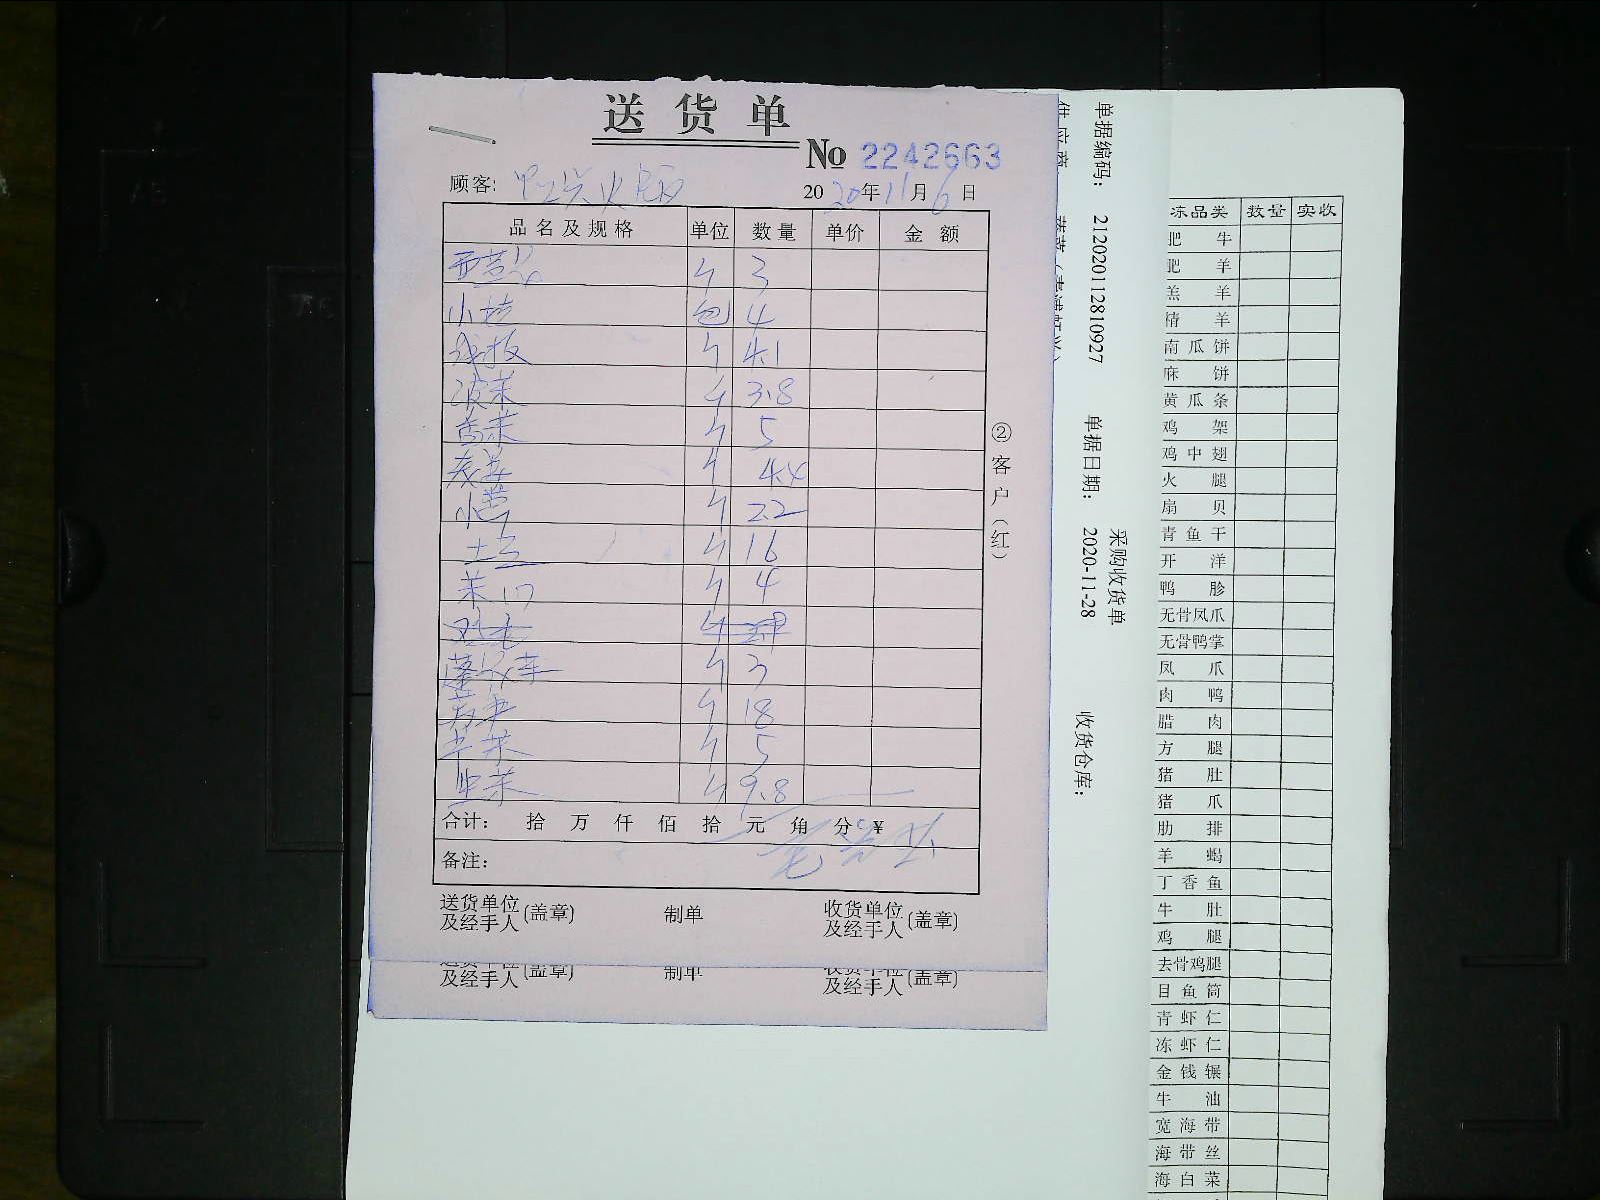 送货单
No 2242663
顾客:
2020年11月6日
品名及规格 单位 数量 单价 金额
斤 3
包 4
斤 4.1
菠菜 斤 3.8
香菜 斤 5
斤 4.4
小葱 斤 2.2
土豆 斤 16
斤 4
斤
蓬 斤 3
斤 18
斤 5
生菜 斤 9.8
合计: 拾 万 仟 佰 拾 元 角 分 ¥
备注:
送货单位及经手人(盖章) 制单 收货单位及经手人(盖章)
②客户(红)
及经手人(盖章) 制单 及经手人(盖章)
采购收货单
单据编码: 212020112810927 单据日期: 2020-11-28 收货仓库:
冻品类 数量 实收
肥牛
肥羊
羔羊
精羊
南瓜饼
麻饼
黄瓜条
鸡架
鸡中翅
火腿
扇贝
青鱼干
开洋
鸭胗
无骨凤爪
无骨鸭掌
凤爪
肉鸭
腊肉
方腿
猪肚
猪爪
肋排
羊蝎
丁香鱼
牛肚
鸡腿
去骨鸡腿
目鱼筒
青虾仁
冻虾仁
金钱辗
牛油
宽海带
海带丝
海白菜